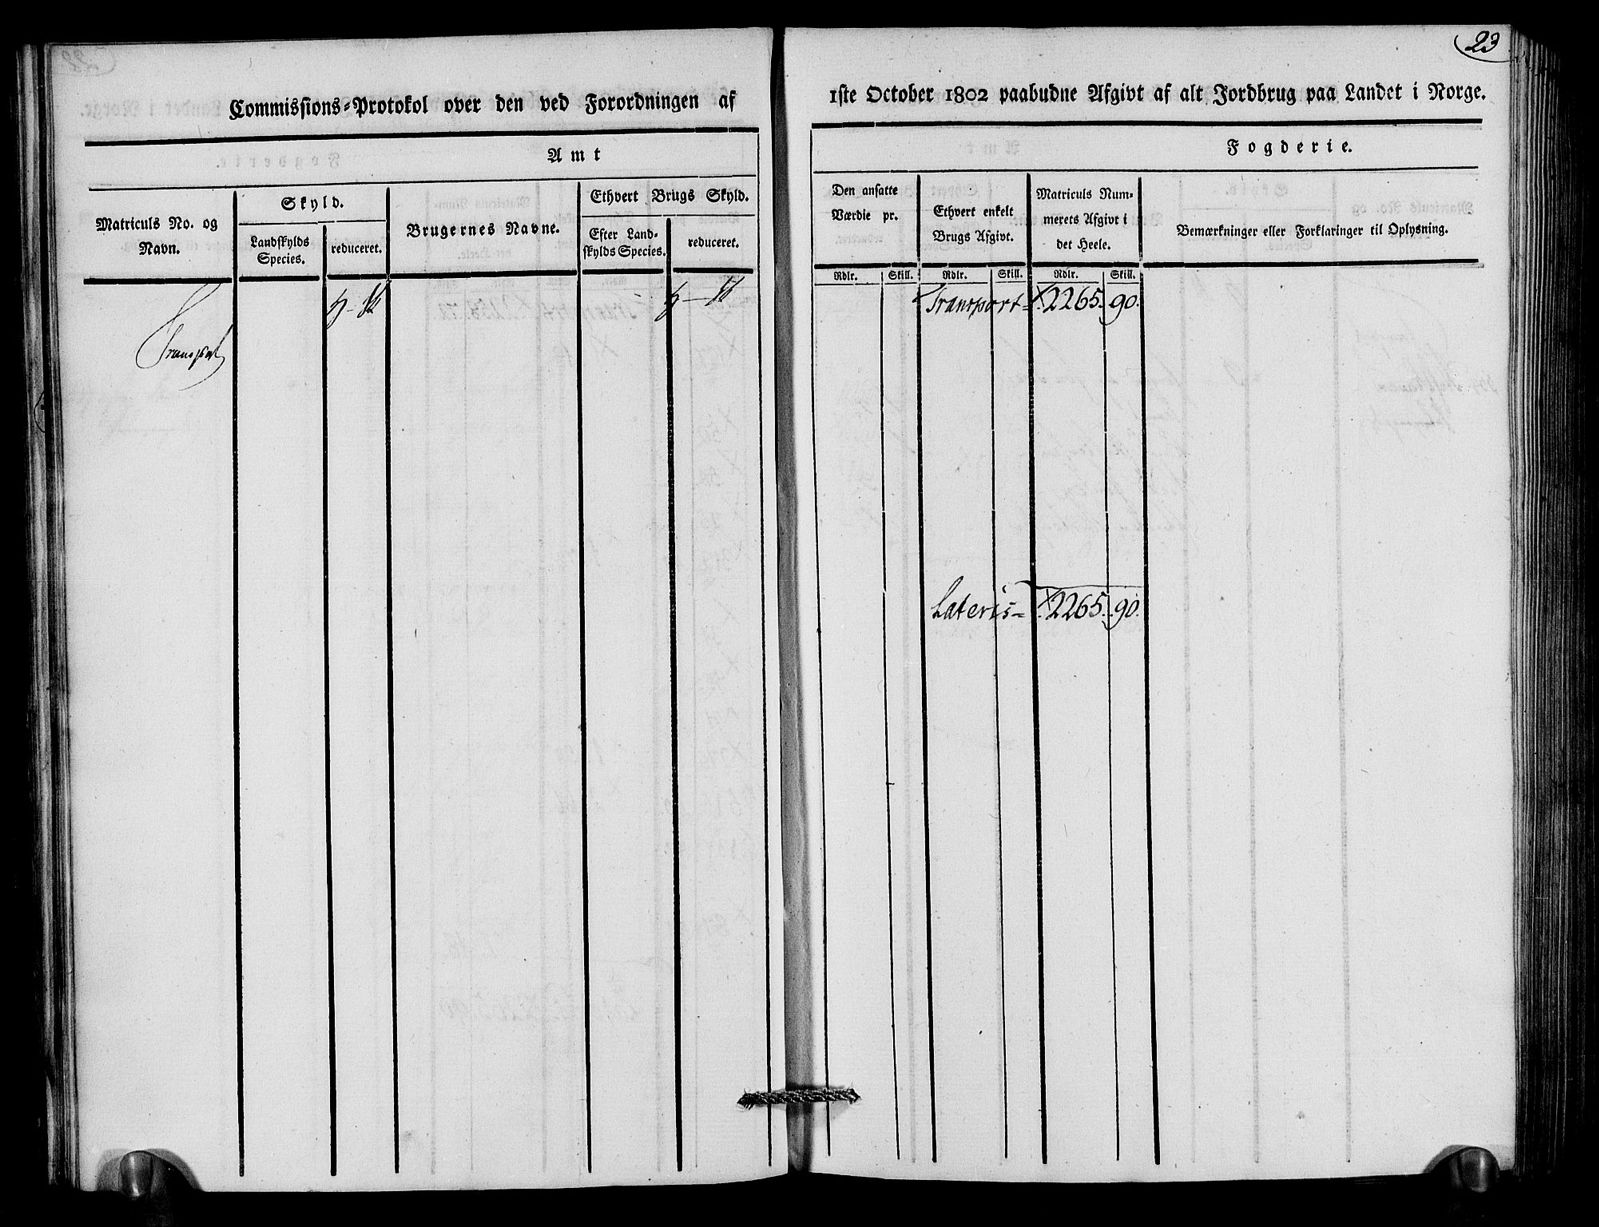 23
Commissions-Protokol over den ved Forordningen af
1ste October 1802 paabudne Afgivt af alt Jordbrug paa Landet i Norge.
Amt
Fogderie.
Matriculs No. og
Navn.
Skyld.
Landskylds
Species.
reduceret.
Brugernes Navne.
Ethvert Brugs Skyld.
Efter Land-
skylds Species.
reduceret.
Den ansatte
Værdie pr.
Ethvert enkelt
Brugs Afgivt.
Matriculs Num-
merets Afgivt i
det Heele.
Bemærkninger eller Forklaringer til Oplysning.
Rdlr. Skill. Rdlr. Skill. Rdlr. Skill.
Transport
Transport 2265. 90.
Lateris 2265. 90.